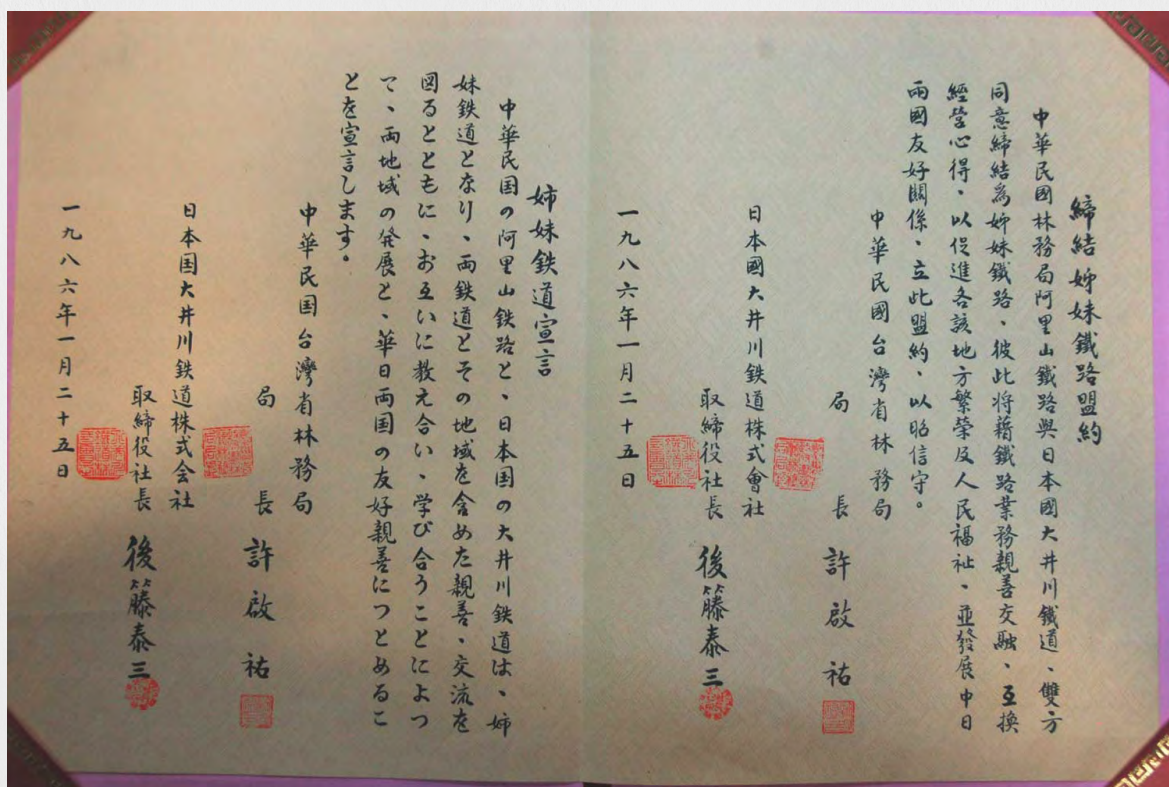 締結姉妹鐵路盟約
中華民國林務局阿里山鐵路與日本國大井川鐵道、雙方
同意締結為姉妹鐵路、彼此將藉鐵路業務親善交融、互換
經營心得、以促進各該地方繁榮及人民福祉、並發展中日
兩國友好關係、立此盟約、以昭信守。
中華民國台灣省林務局
局長 許啟祐
日本國大井川鉄道株式會社
取締役社長 後籐泰三
一九八六年一月二十五日
姉妹鉄道宣言
中華民国の阿里山鉄路と、日本国の大井川鉄道は、姉
妹鉄道となり、両鉄道とその地域を含めた親善、交流を
図るとともに、お互いに教え合い、学び合うことによっ
て、両地域の発展と、華日両国の友好親善につとめるこ
とを宣言します。
中華民国台灣省林務局
局長 許啟祐
日本国大井川鉄道株式会社
取締役社長 後籐泰三
一九八六年一月二十五日